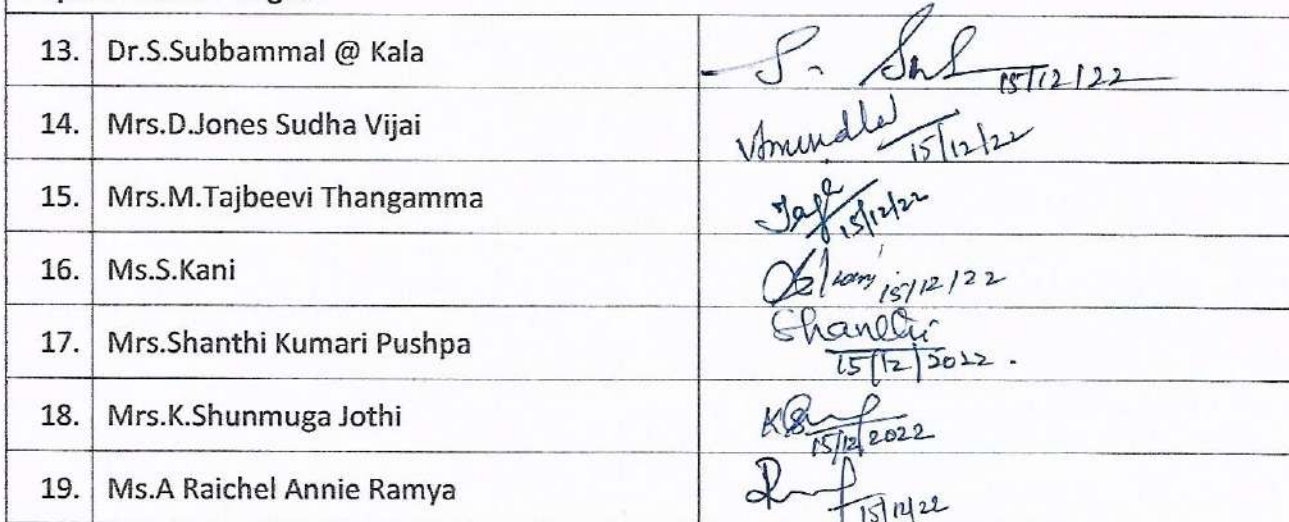 13. Dr.S.Subbammal @ Kala 15/12/22
14. Mrs.D.Jones Sudha Vijai 15/12/22
15. Mrs.M.Tajbeevi Thangamma 15/12/22
16. Ms.S.Kani 15/12/22
17. Mrs.Shanthi Kumari Pushpa Shanthi 15/12/2022.
18. Mrs.K.Shunmuga Jothi 15/12/2022
19. Ms.A Raichel Annie Ramya 15/12/22